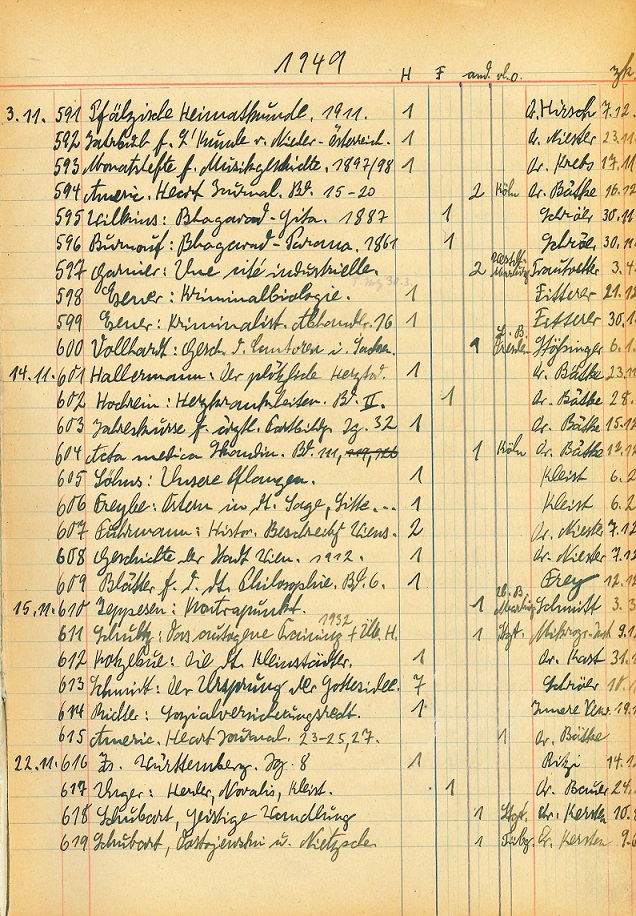 1949
H F and. vl.o. zk.
3.11. 591 Pfälzische Heimatkunde. 1911. 1 Dr. Hirsch 7.12.
592 Jahrbuch f. L'Kunde v. Nieder-Österreich. 1 Dr. Niester 23.11
593 Monatshefte f. Musikgeschichte. 1897/98 1 Dr. Krebs 17.11
594 Americ. Heart Journal. Bd. 15-20 2 Köln Dr. Bätke 16.12
595 Wilkins: Bhagavad-Gita. 1887 1 Schröer 30.11
596 Burnouf: Bhagavad-Purana. 1861 1 Schröe 30.11
597 Garnier: Une cité industrielle. 2 Trautvetter 3.4.
598 Exner: Kriminalbiologie. 1 Fitterer 21.12
599 Exner: Kriminalist. Abhandlg. 16 1 Fitterer 30.1
600 Vollhardt: Gesch. d. Cantoren i. Sachsen. 1 L.B. Dresden 6.1.
14.11. 601 Hallermann: Der plötzliche Herztod. 1 Dr. Bätke 23.11
602 Hochrein: Herzkrankheiten. Bd. II. 1 Dr. Bätke 28.
603 Jahreskurse f. ärztl. Fortbildg. Jg. 32 1 Dr. Bätke 15.12
604 Acta medica Skandin. Bd. 111, 1 Köln Dr. Bätke
605 Söhns: Unsere Pflanzen. 1 Kleist 6.2
606 Freybe: Ostern in dt. Sage, Sitte... 1 Kleist 6.2
607 Fuhrmann: Histor. Beschreibg Wiens. 2 Dr. Niester 7.12
608 Geschichte der Stadt Wien. 1912. 1 Dr. Niester 7.12
609 Blätter f. d. dt. Philosophie. Bd. 6. 1 Frey 12.12
15.11. 610 Jeppesen: Kontrapunkt. 1 Schmitt 3.3
611 Schultz: Das autogene Training 1932 + Üb. H. 1 Stgt. 9.1
612 Kotzebue: Die dt. Kleinstädter. 1 Dr. Kast 31.1
613 Schmidt: Der Ursprung der Gottesidee. 7 Schröer
614 Richter: Sozialversicherungsrecht. 1 19.
615 Americ. Heart Journal. 23-25, 27. 1 Dr. Bätke
22.11. 616 Zs. Württemberg. Jg. 8 1 14.12
617 Unger: Herder, Novalis, Kleist. 1 Dr. Bauer 24.
618 Schubart, Geistige Wandlung 1 Stgt. Dr. Kersten 10.
619 Schubart, Dostojewski u. Nietzsche 1 Tübg. Dr. Kersten 9.